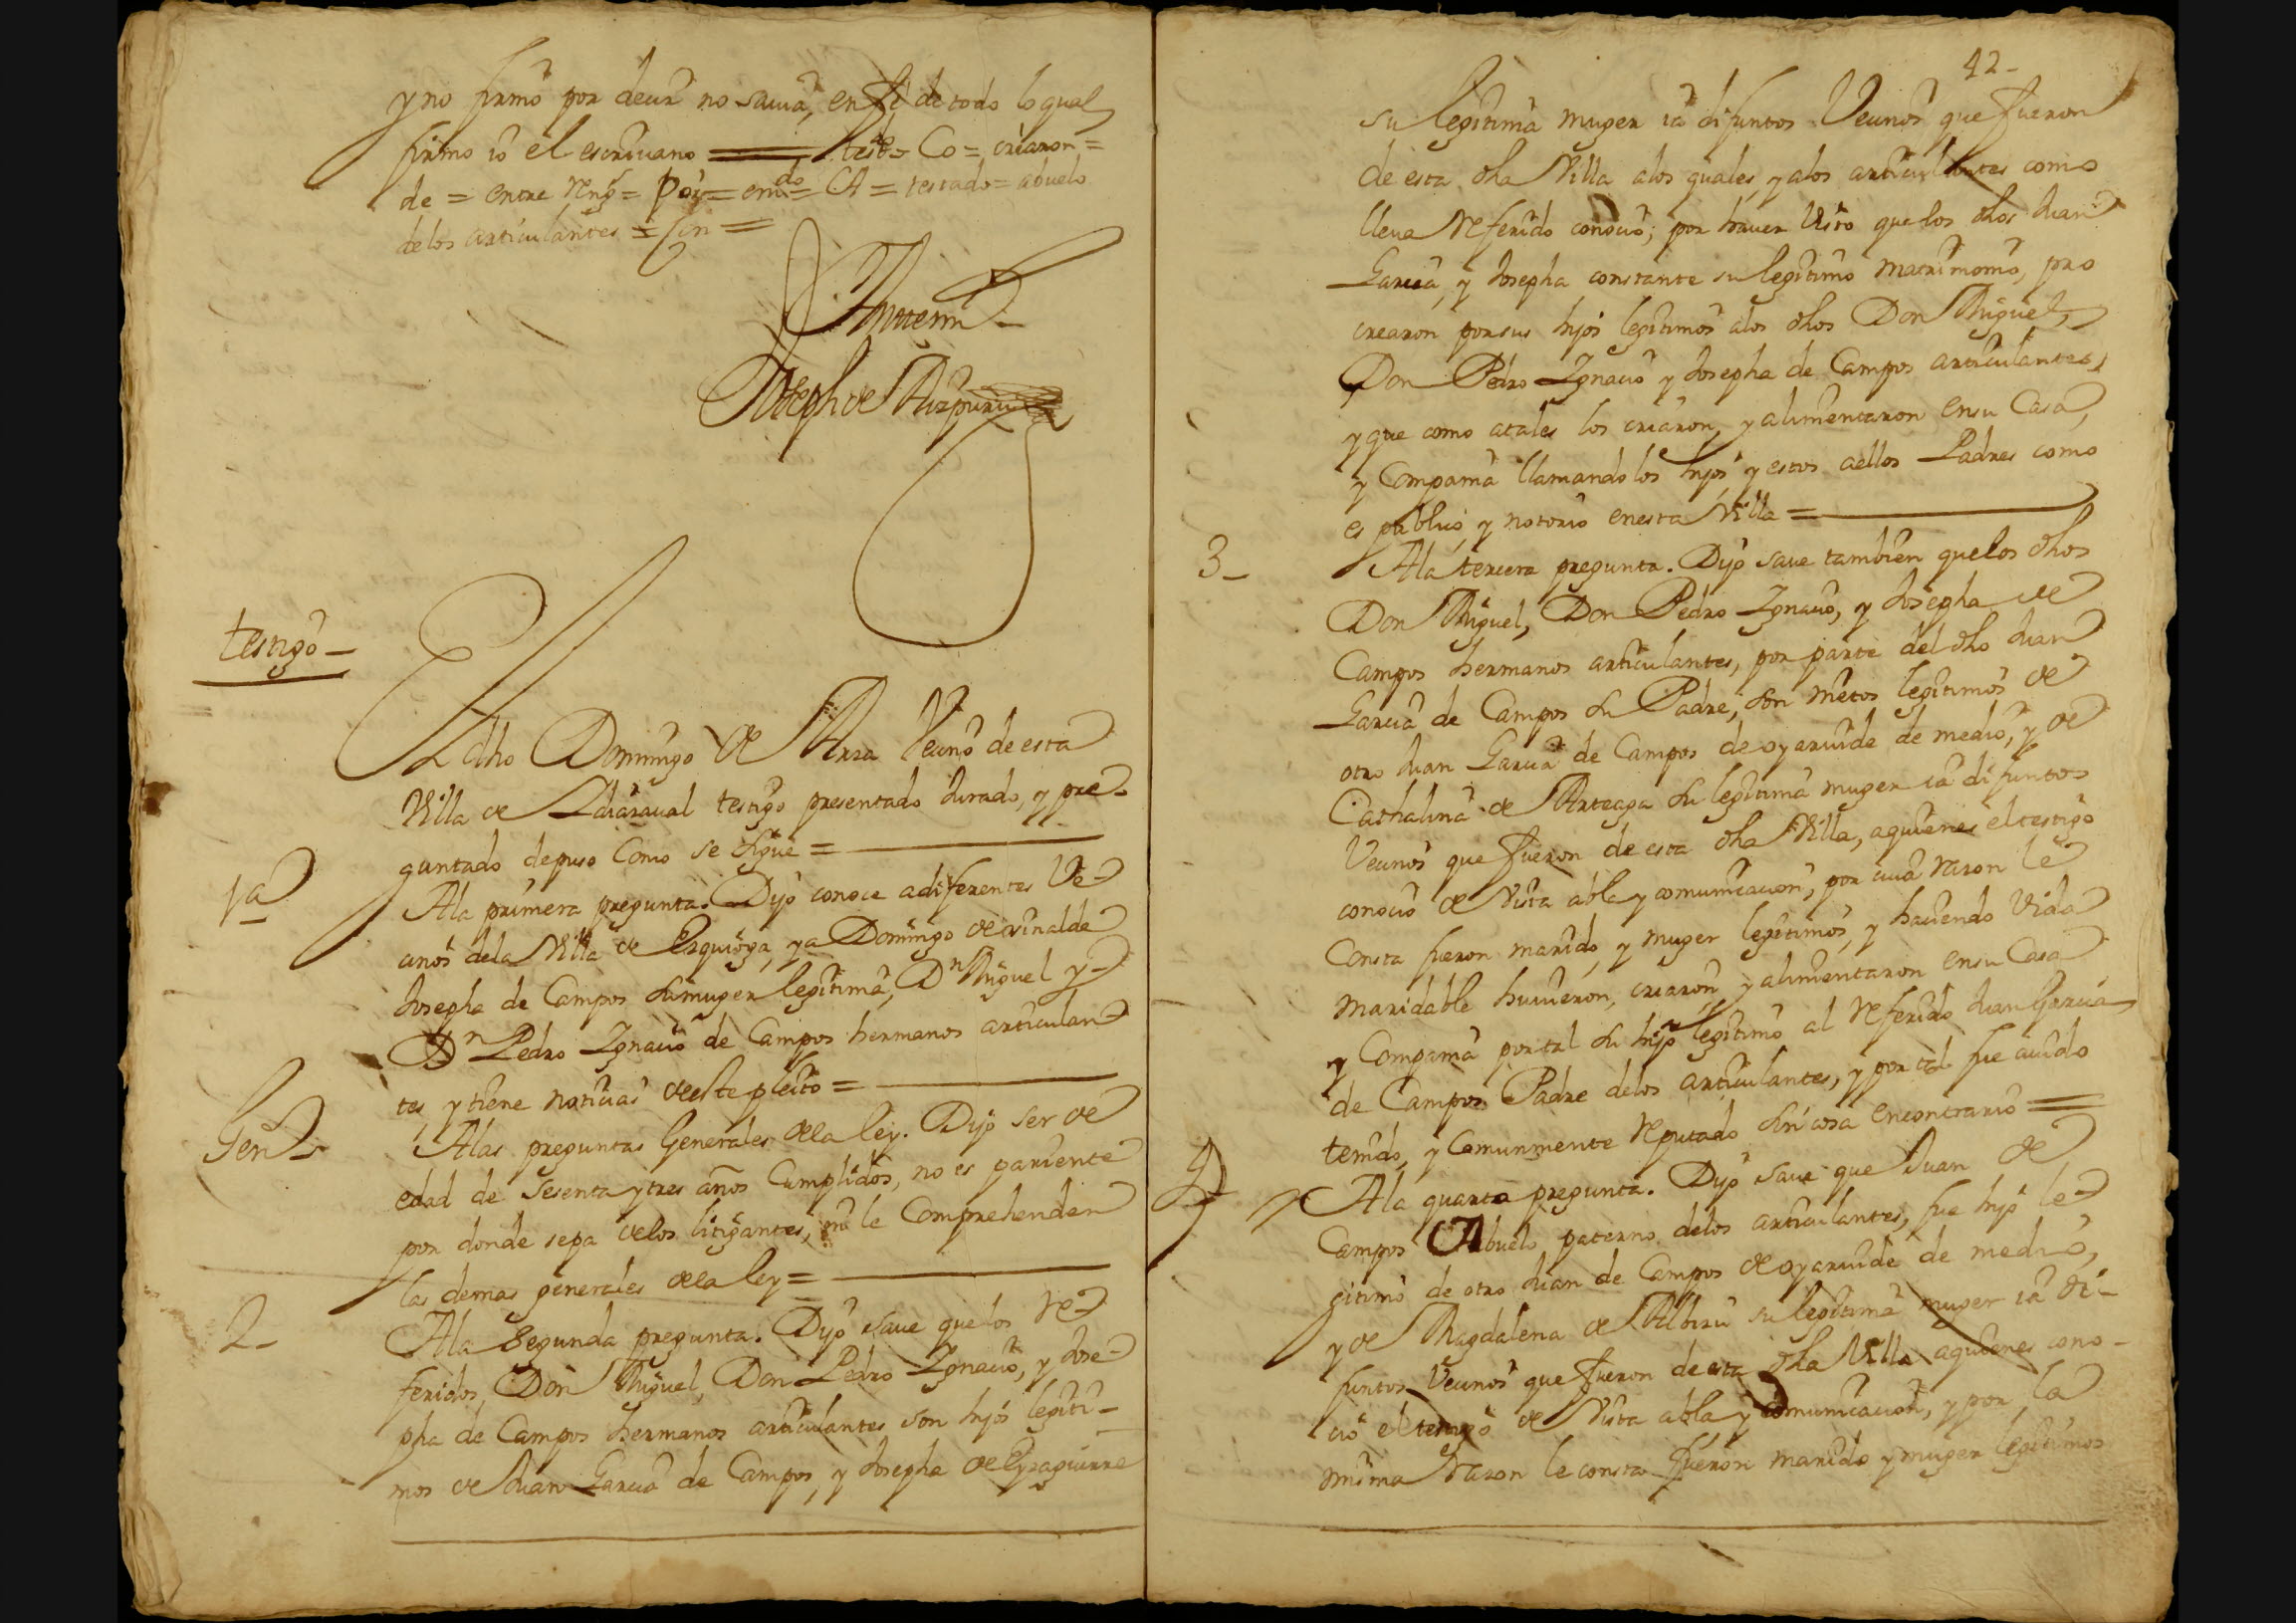 y no firmo por decir no saver, en fe de todo lo qual
firmo io el escrivano = testdo = Co = criaron =
de = entre Rengs = Por = emdo = A = testado = abuelo
de los articulantes = sin =
Antemi
Joseph de Aizpuru
testigo
El dho Domingo de Arza Vecino de esta
Villa de Ichasaval testigo presentado Jurado, y pre-
guntado depuso Como se sigue =
1a
A la primera pregunta. Dijo conoce a diferentes Ve-
cinos de la Villa de Ezquioga, y a Domingo de
Josepha de Campos su muger legitima, Dn Miguel y
Dn Pedro Ignacio de Campos hermanos articulan
tes, y tiene noticias de este pleito =
Gens
A las preguntas Generales de la ley. Dijo ser de
edad de Sesenta y tres años Cumplidos, no es pariente
por donde sepa de los litigantes, ni le Comprehenden
las demas generales de la ley =
2
A la Segunda pregunta. Dijo save que los Re-
feridos, Don Miguel, Don Pedro Ignacio, y Jose-
pha de Campos hermanos articulantes son hijos legiti-
mos de Juan Garcia de Campos, y Josepha de Eyzaguirre
42
su legitima muger ia difuntos Vecinos que fueron
de esta dha Villa a los quales, y a los articulantes como
lleva Referido conocio; por haver Visto que los dhos Juan
Garcia, y Josepha constante su legitimo matrimonio, pro
crearon por sus hijos legitimos a los dhos Don Miguel,
Don Pedro Ignacio y Josepha de Campos articulantes,
y que como a tales los criaron, y alimentaron en su Casa,
y Compania llamandolos hijos y estos a ellos Padres como
es publico, y notorio en esta Villa =
3
A la tercera pregunta. Dijo save tambien que los dhos
Don Miguel, Don Pedro Ignacio, y Josepha de
Campos hermanos articulantes, por parte del dho Juan
Garcia de Campos su Padre, son nietos legitimos de
otro Juan Garcia de Campos de oyarvide de medio, y de
Cathalina de Arteaga su legitima muger ia difuntos
Vecinos que fueron de esta dha Villa, a quienes el testigo
conocio de Vista abla y comunicacion, por cuia razon le
Consta fueron marido, y muger legitimos, y haciendo Vida
maridable huvieron, criaron y alimentaron en su Casa
y Compania por tal su hijo legitimo al Referido Juan Garcia
de Campos Padre de los articulantes, y por tal fue avido
tenido, y Comunmente Reputado sin cosa en contrario =
4
A la quarta pregunta. Dijo save que Juan de
Campos Abuelo paterno de los articulantes, fue hijo le-
gitimo de otro Juan de Campos de oyarvide de medio,
y de Magdalena de Albizu su legitima muger ia di-
funtos Vecinos que fueron de esta dha Villa a quienes cono-
cio el testigo de Vista abla y comunicacion, y por la
misma razon le consta fueron marido y muger legitimos